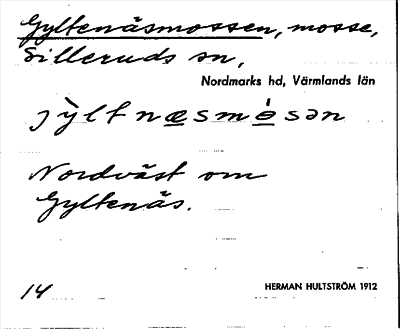 Gyltenäsmossen, mosse,
Silleruds sn,
Nordmarks hd, Värmlands län
jỳltnæsmósən
Nordväst om
Gyltenäs.
14 HERMAN HULTSTRÖM 1912